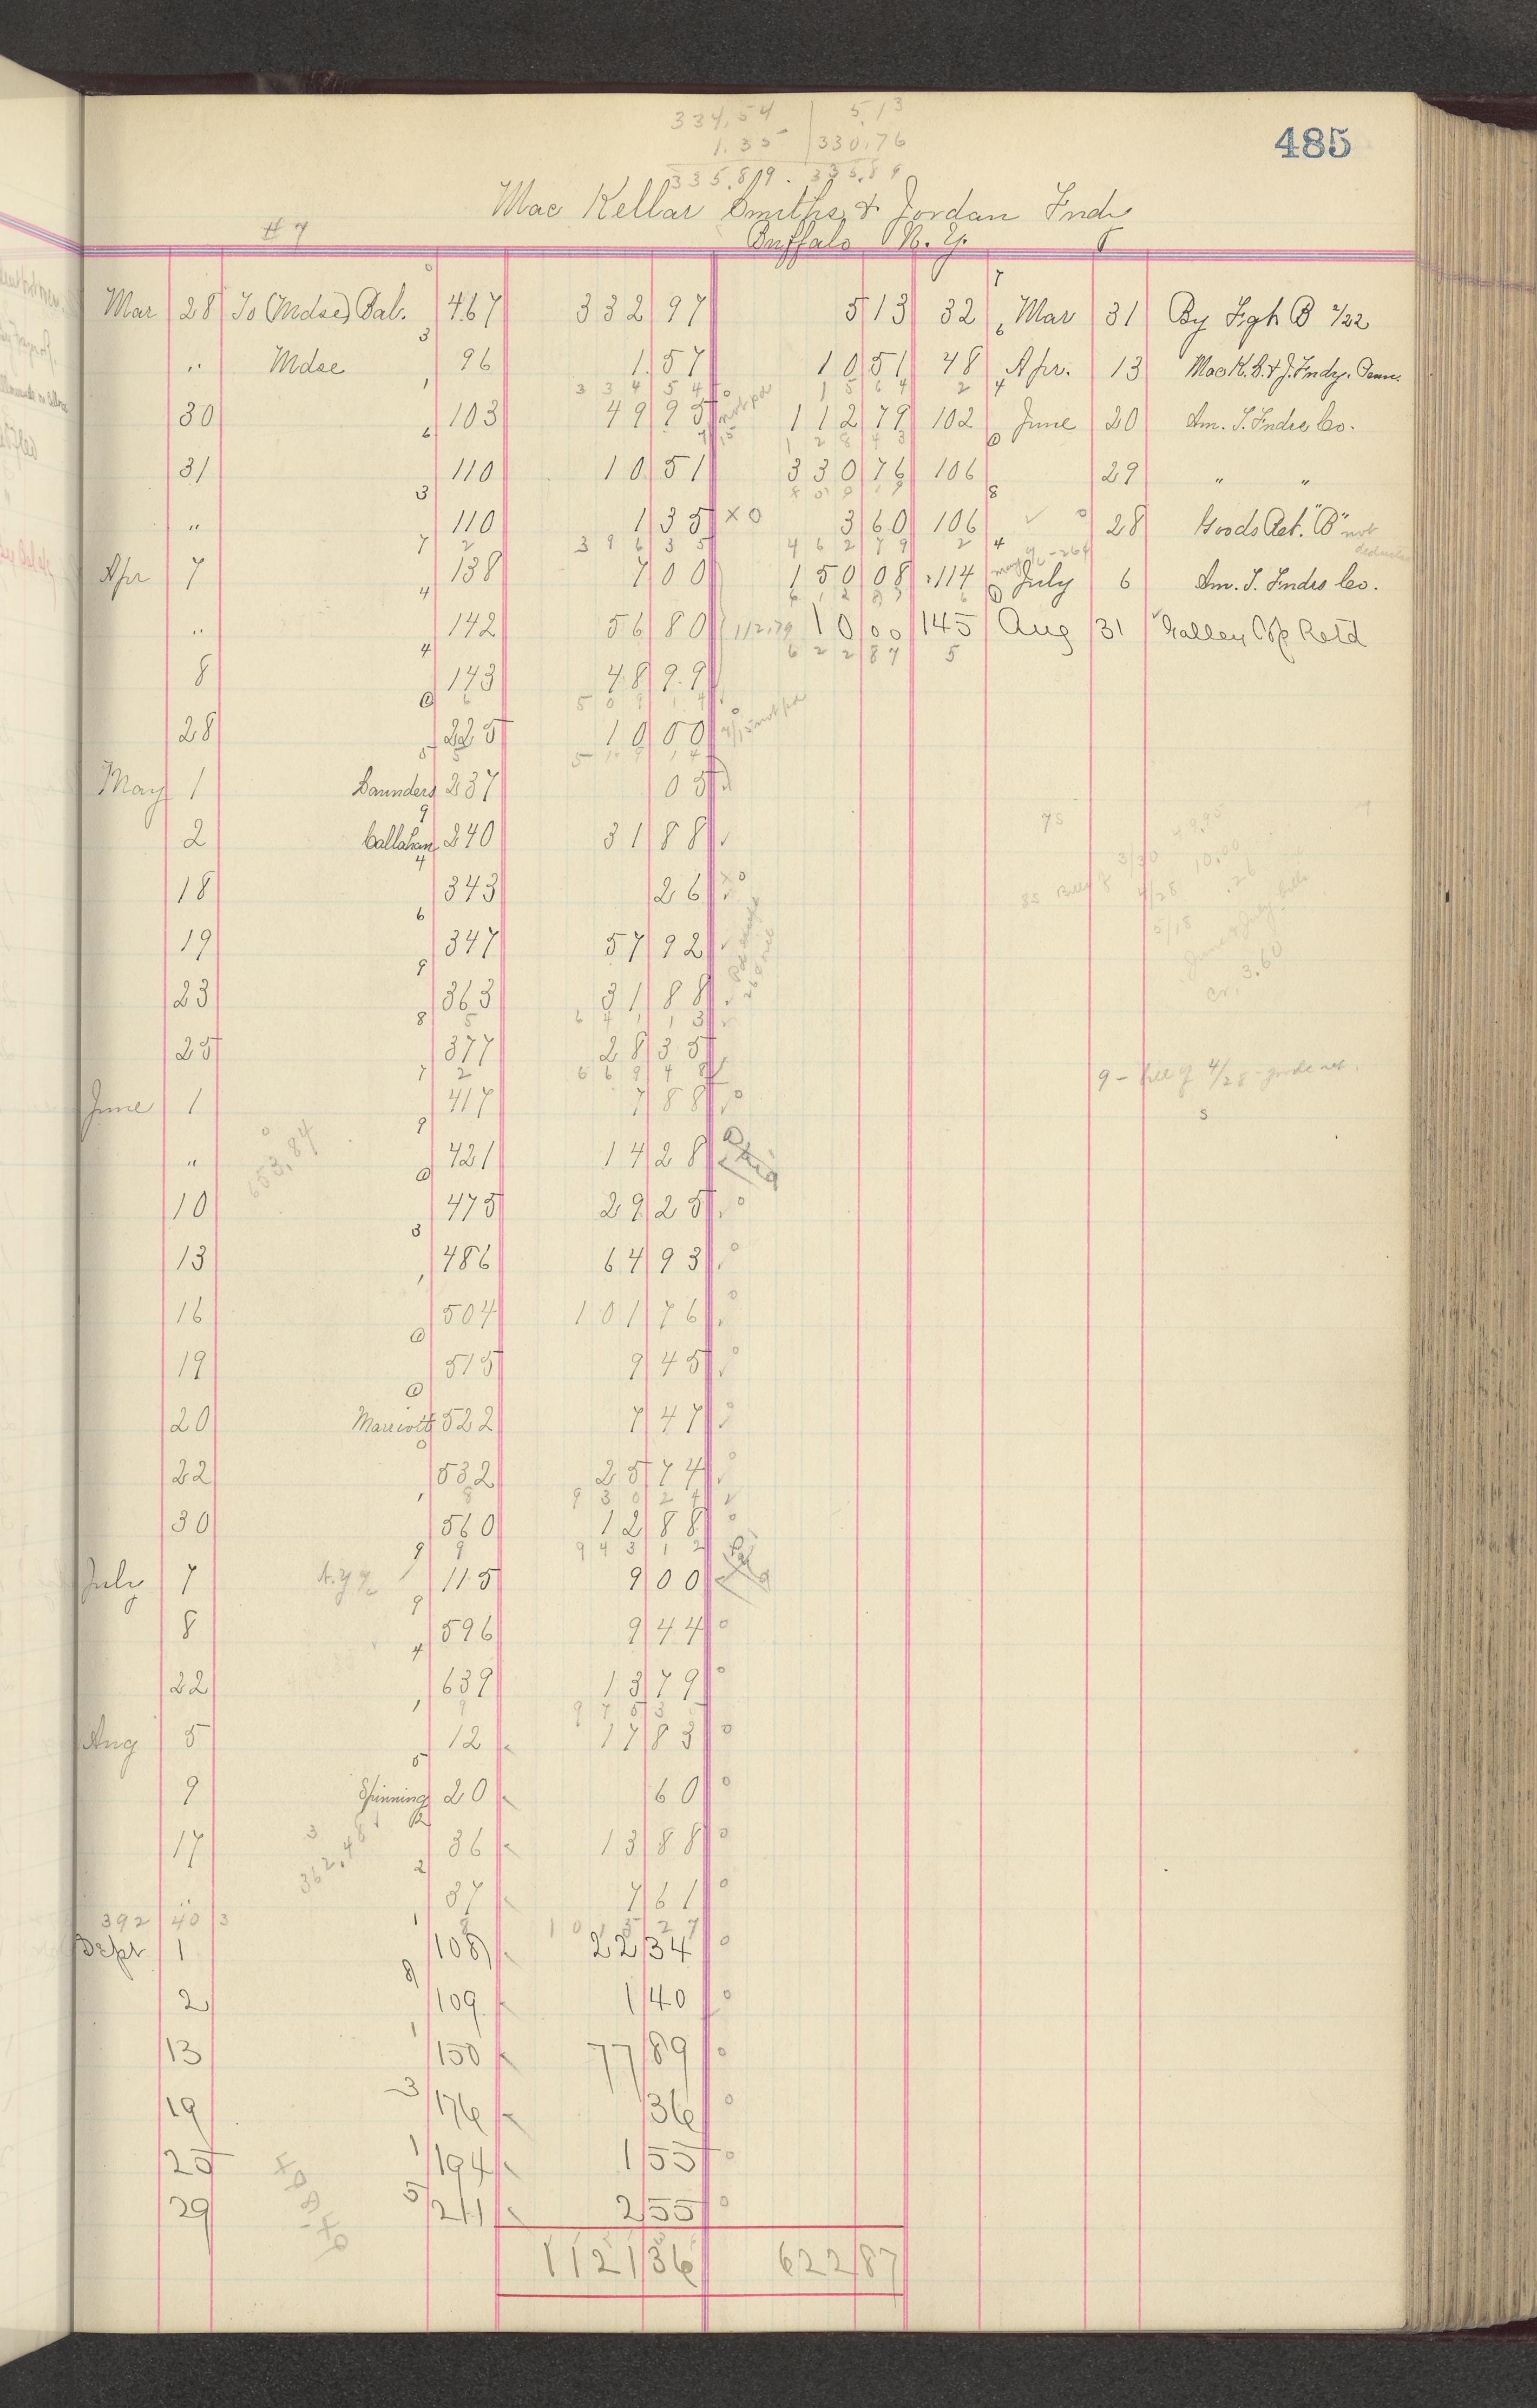 334.54 | 5.13
1.35 | 330.76
335.89. 335.89
485
Mac Kellar Smiths & Jordan Fndry
# 7 Buffalo N. Y.
Mar 28 To (Mdse) Bal. 467 332 97 5 13 32 Mar 31 By Frgh B 2/22
" Mdse 96 1 57 10 51 48 Apr. 13 MacK. S. & J. Fndry.
334 54 15 64
30 103 49 95 not pd 112 79 102 June 20 Am. T. Fndrs Co.
128 43
31 110 10 51 330 76 106 29 " "
" 110 1 35 x o 3 60 106 28 Goods Ret. "B" not
396 35 462 79
Apr 7 138 7 00 150 08 114 July 6 Am. T. Fndrs Co.
" 142 56 80 112.79 10 00 145 Aug 31 Galley Retd
622 87
8 143 48 99
509 14
28 225 10 00 not pd
519 14
May 1 Saunders 237 05
2 Callahan 240 31 88
18 343 26
19 347 57 92
23 363 31 88
641 13
25 377 28 35
669 48
June 1 417 7 88
" 421 14 28
653.84
10 475 29 25
13 486 64 93
16 504 101 76
19 515 9 45
20 Marriott 522 7 47
22 532 25 74
930 24
30 560 12 88
943 12
July 7 N.Y. 115 9 00
8 596 9 44
22 639 13 79
975 35
Aug 5 12 17 83
9 Spinning 20 60
17 36 13 88
362.48
" 37 7 61
392 40 3 1015 27
Sept 1 108 22 34
2 109 1 40
13 150 77 89
19 176 36
25 194 1 55
29 211 2 55
1121 36 622 87
75
49.95
3/30 10.00
85 Bills of 4/28 .26
5/18
June & July bills
cr. 3.60
9 - bill of 4/28 - goods not